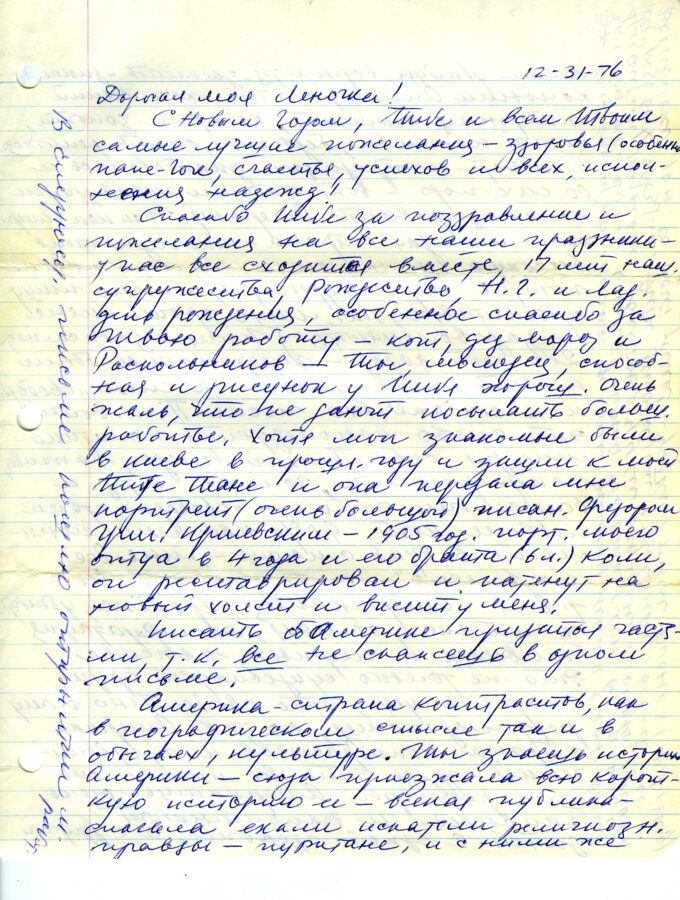 12-31-76
Дорогая моя Леночка!
С Новым Годом, Тебе и всем Твоим
самые лучшие пожелания – здоровья (особенно
папе-Гог), счастья, успехов и всех, испол-
нения надежд!
Спасибо Тебе за поздравление и
пожелания на все наши праздники –
у нас все сходится вместе, 17 лет наш.
супружества, Рождество, Н.Г. и Лад.
день рождения, особенное спасибо за
Твою работу – кот, дед мороз и
Раскольников – Ты, молодец, способ-
ная и рисунок у Тебя хорош. Очень
жаль, что не дают посылать больш.
работы. Хотя мои знакомые были
в Киеве в прошл. году и зашли к моей
тете Тане и она передала мне
портрет (очень большой) писан. Федором
1905 год. порт. моего
отца в 4 года и его брата (6 л.) Коли,
он реставрирован и натянут на
новый холст и висит у меня.
Писать об Америке придется частя-
ми, т.к. все не опишешь в одном
письме.
Америка – страна контрастов, как
в географическом смысле так и в
обычаях, культуре. Ты знаешь историю
Америки – сюда приезжала всю корот-
кую историю ее – всякая публика –
сначала ехали искатели религиозн.
правды – пуритане, и с ними же
В следующем письме пошлю открытки м.